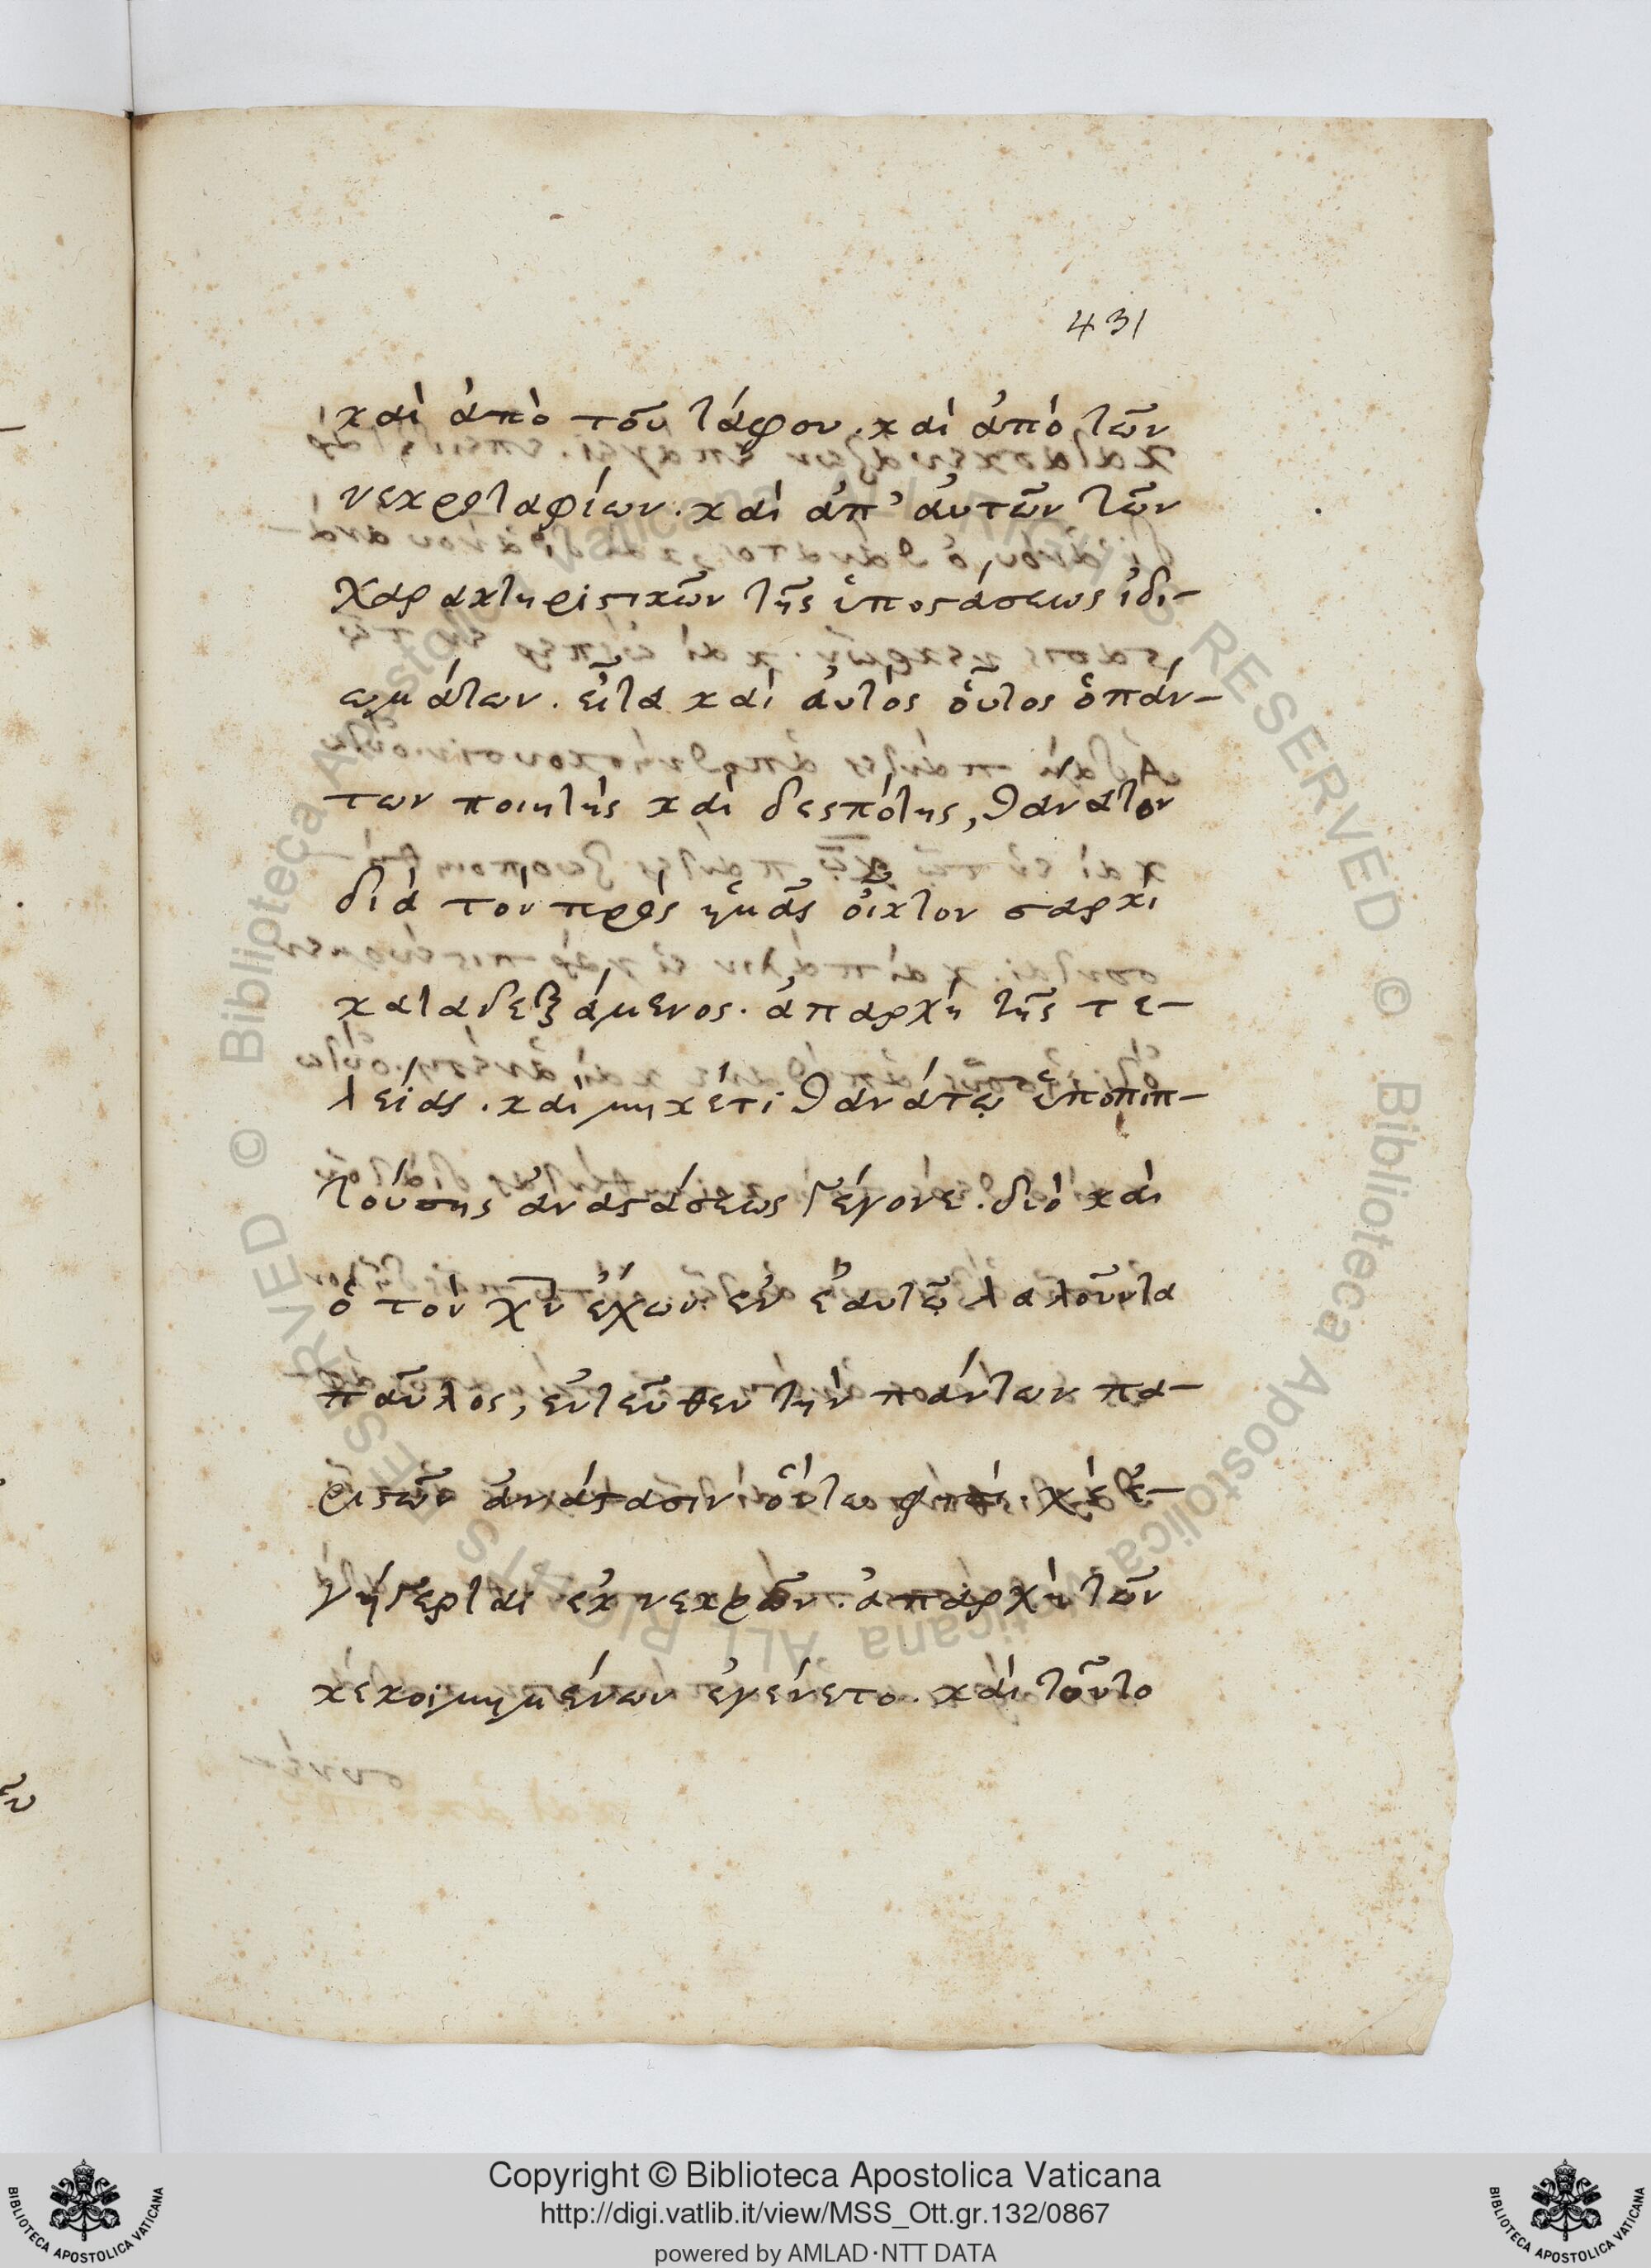 431
καὶ ἀπὸ τοῦ τάφου. καὶ ἀπὸ τῶν
νεκροταφίων. καὶ ἀπ' ἀυτῶν τῶν
χαρακτηριστικῶν τῆς ὑποστάσεως ἰδι-
ωμάτων. εἶτα καὶ ἀυτὸς οὗτος ὁ πάν-
των ποιητὴς καὶ δεσπότης, θάνατον
διὰ τὸν πρὸς ἡμᾶς οἶκτον σαρκὶ
καταδεξάμενος. ἀπαρχὴ τῆς τε-
λείας. καὶ μηκέτι θανάτῳ ὑποπιπ-
τούσης ἀναστάσεως γέγονε. διὸ καὶ
ὁ τὸν χν̄ ἔχων ἐν ἑαυτῷ λαλοῦντα
παῦλος, ἐντεῦθεν τὴν πάντων πα-
ριστῶν ἀνάστασιν οὕτω φησί. χς ἐ-
γήγερται ἐκ νεκρῶν. ἀπαρχὴ τῶν
κεκοιμημένων ἐγένετο. καὶ τοῦτο
Copyright © Biblioteca Apostolica Vaticana
http://digi.vatlib.it/view/MSS_Ott.gr.132/0867
powered by AMLAD·NTT DATA
BIBLIOTECA APOSTOLICA VATICANA
BIBLIOTECA APOSTOLICA VATICANA